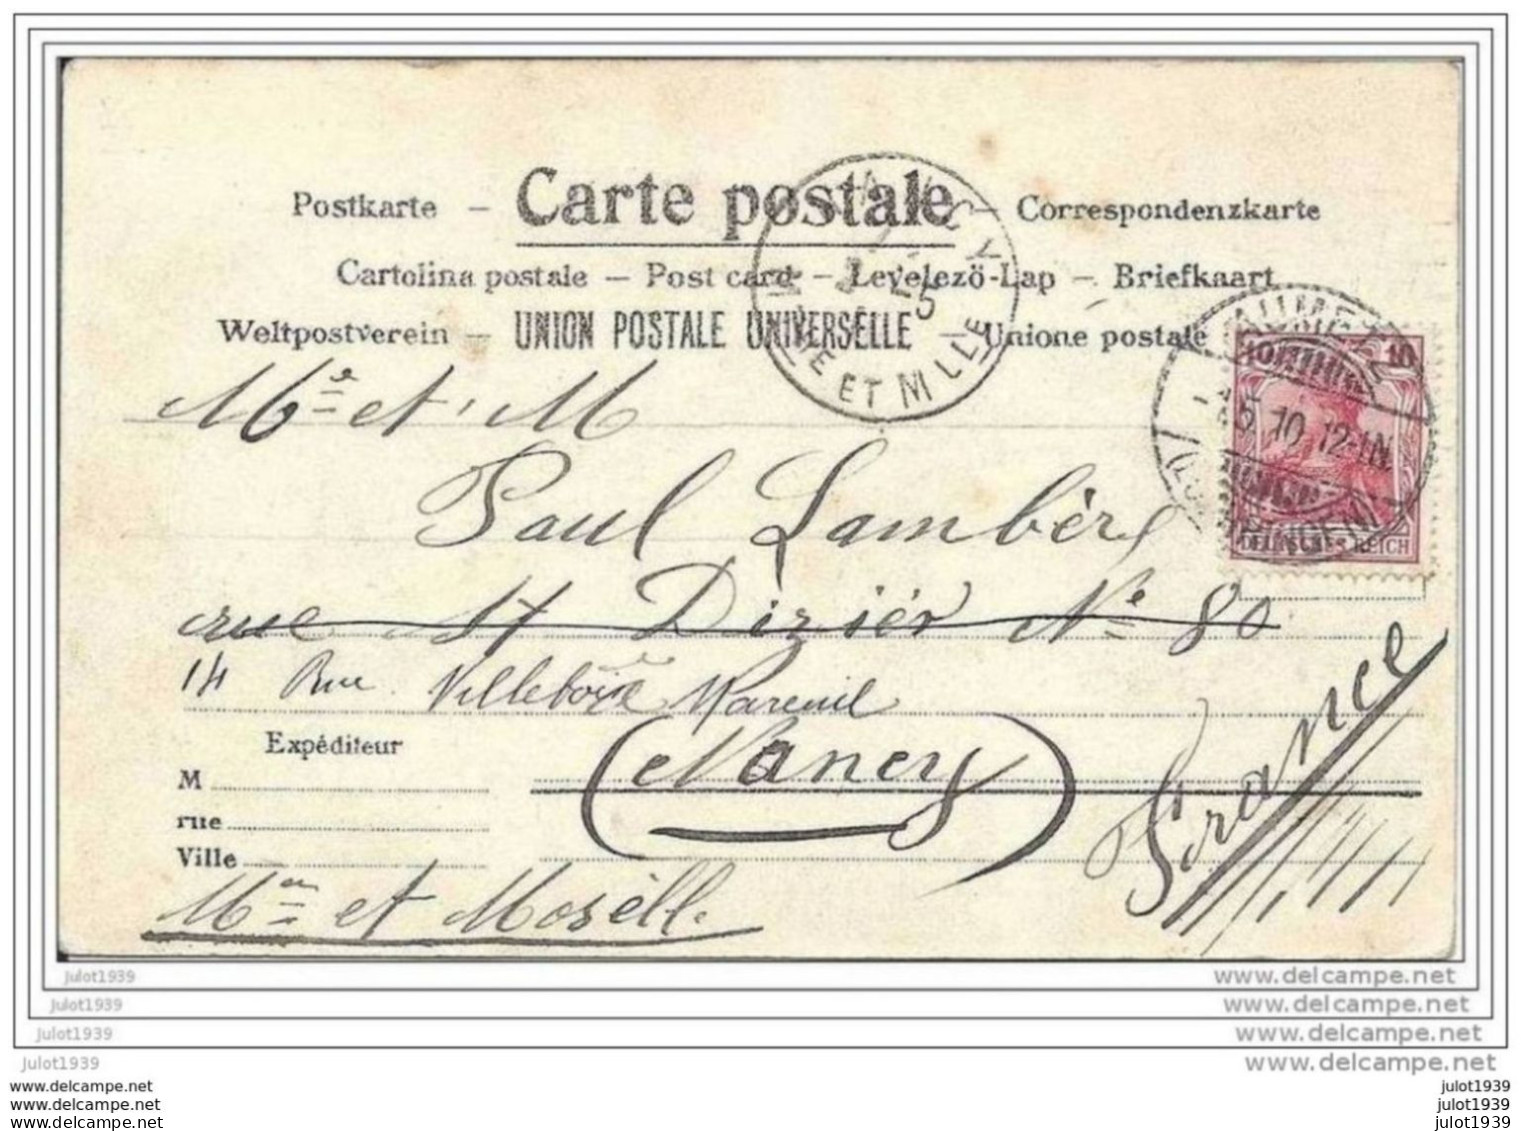 Postkarte – Carte postale – Correspondenzkarte
Cartolina postale – Post card – Levelező-Lap – Briefkaart
Weltpostverein – UNION POSTALE UNIVERSELLE – Unione postale
NANCY
5
MTHE ET MLLE
10 10
5 10 12-1N
DEUTSCHES REICH
Mr et M
Paul Lambér
rue St Diziér No 80
14 Rue Villebois Mareuil
Nancy
France
Expéditeur
M
rue
Ville
Mthe et Moséll.
julot1939 www.delcampe.net
julot1939 www.delcampe.net
julot1939 www.delcampe.net
julot1939 www.delcampe.net
www.delcampe.net julot1939
www.delcampe.net julot1939
www.delcampe.net julot1939